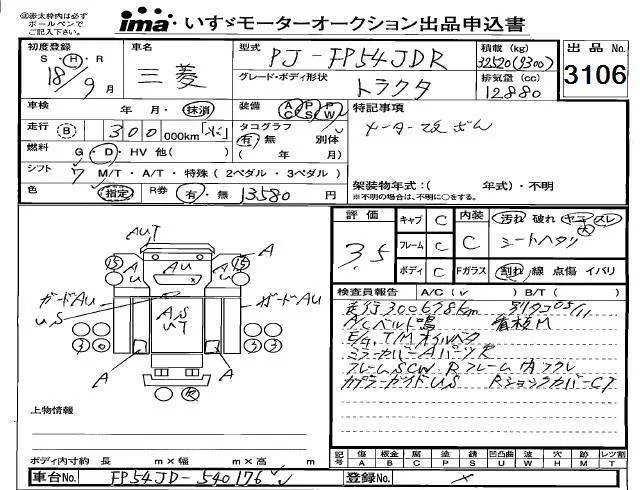 ㊟赤太枠内は必ず
ボールペンで
ご記入下さい。
ima いすゞモーターオークション出品申込書
初度登録 S・H・R 18年 9月
車名 三菱
型式 PJ-FP54JDR
積載(kg) 32520(9300)
出品No. 3106
グレード・ボディ形状 トラクタ
排気量(cc) 12880
車検 年 月・抹消
装備 AC PS PW
特記事項
メーター改ざん
走行 B 300 000km
タコグラフ 有 無 別体
( 年 月)
燃料 G・D・HV 他( )
シフト 7 M/T・A/T・特殊(2ペダル・3ペダル)
架装物年式:( 年式)・不明
※不明の場合は、不明に○をする。
色 指定 R券 有・無 13580円
評価 3.5
キャブ C 内装 C 汚れ 破れ ヤニ スレ 大
フレーム C シートヘタリ
ボディ C Fガラス 割れ 線 点傷 イバリ
検査員報告 A/C(レ) B/T( )
走行300678km
A/Cベルト鳴 看板M
E/g、T/Mオイルベタ
ミラーカバーAパーツR
フレームSCW
カプラーガイドU.S
AUT
A
15 AU AU AU 15
ガードAU ガードAU
U.S
A.S
UT
A A
上物情報
ボディ内寸約 長 m×幅 m×高 m
記号 傷A 板金B 腐C 塗P 錆S 凹凸曲U 波W 穴H 跡M レツ割T
車台No. FP54JD-540176
登録No.